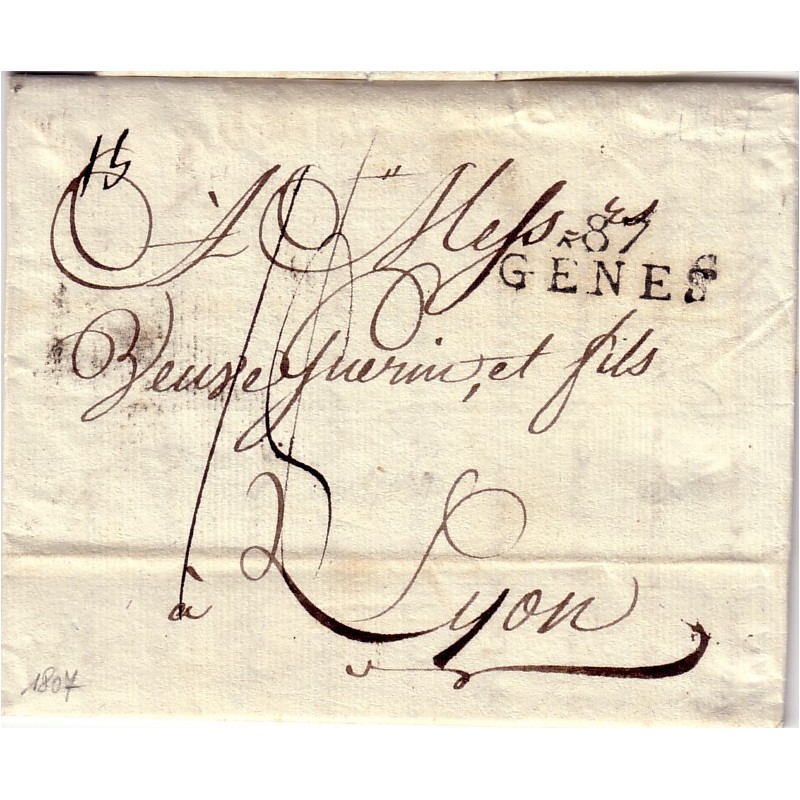 15
A Mess.rs
87
GENES
Veuve Guerin, et fils
à Lyon
1807